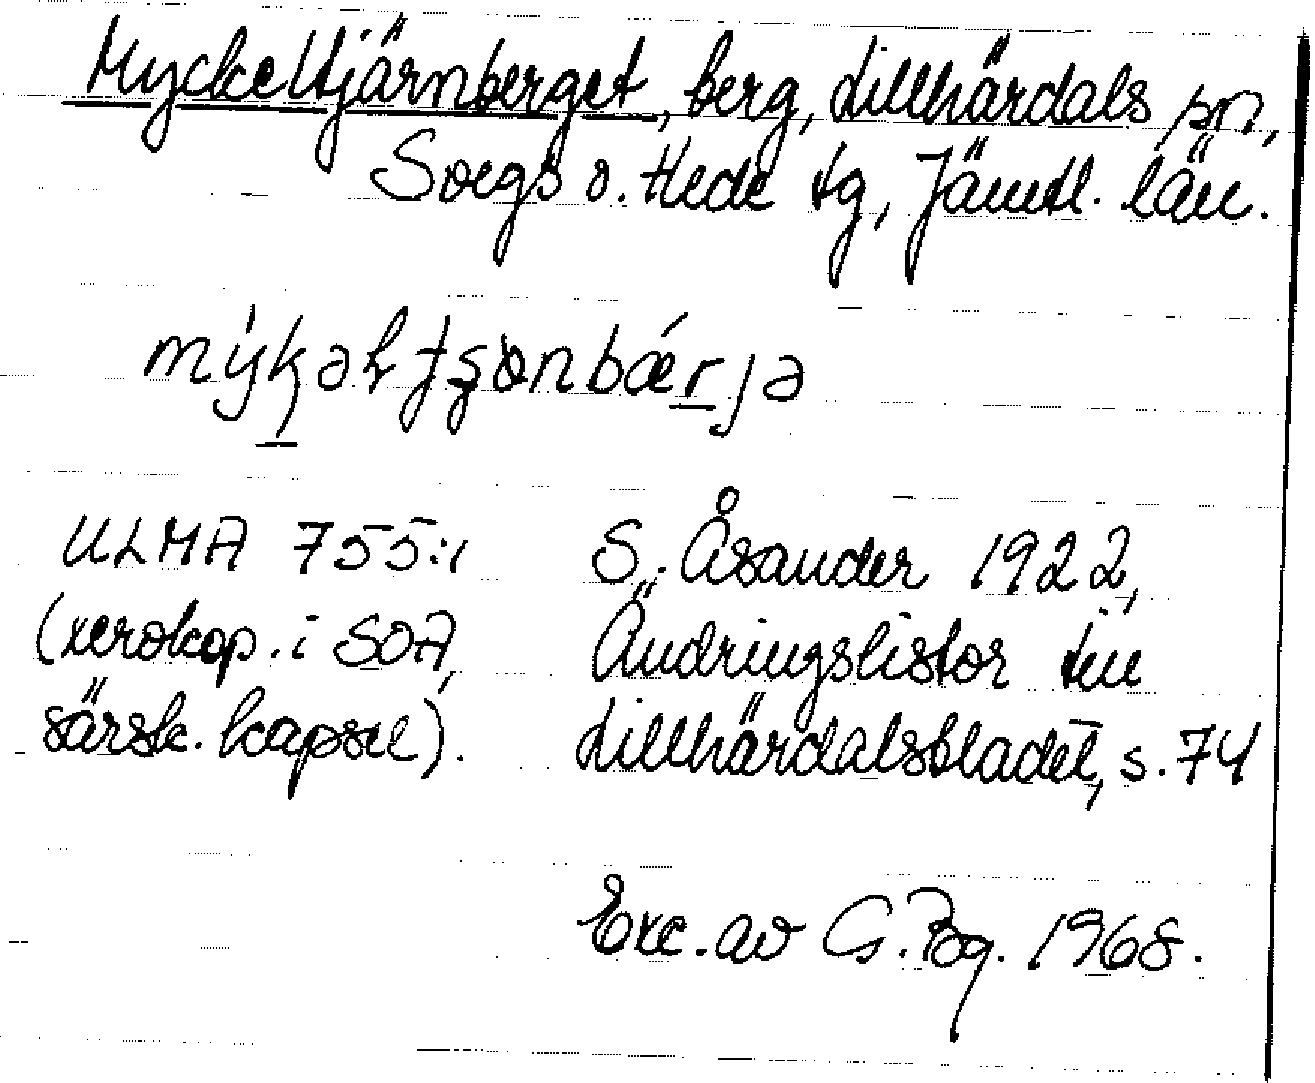 Myckeltjärnberget, berg, Lillhärdals sn,
Svegs o. Hede tg, Jämtl. län.
ULMA 755:1 S. Åsander 1922,
(xerokop. i SOA, Ändringslistor till
särsk. kapsel). Lillhärdalsbladet, s. 74
Exc. av G. Bg. 1968.